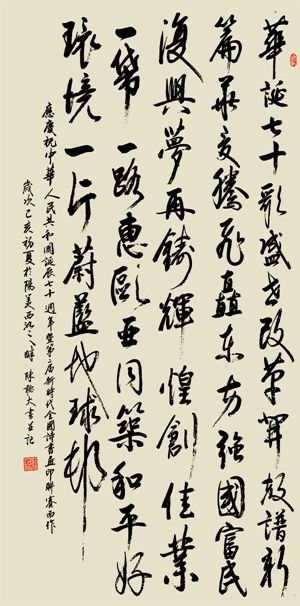 華誕七十歌盛世改革開放譜新
篇華夏騰飛矗東方強國富民
復興夢再鑄輝煌創佳業
一帶一路惠歐亞同築和平好
環境一片蔚藍地球村
應慶祝中華人民共和國誕辰七十週年暨第二屆新時代全國詩書畫印聯賽而作
歲次己亥初夏於陽羨西氿之畔 陳 大書並記